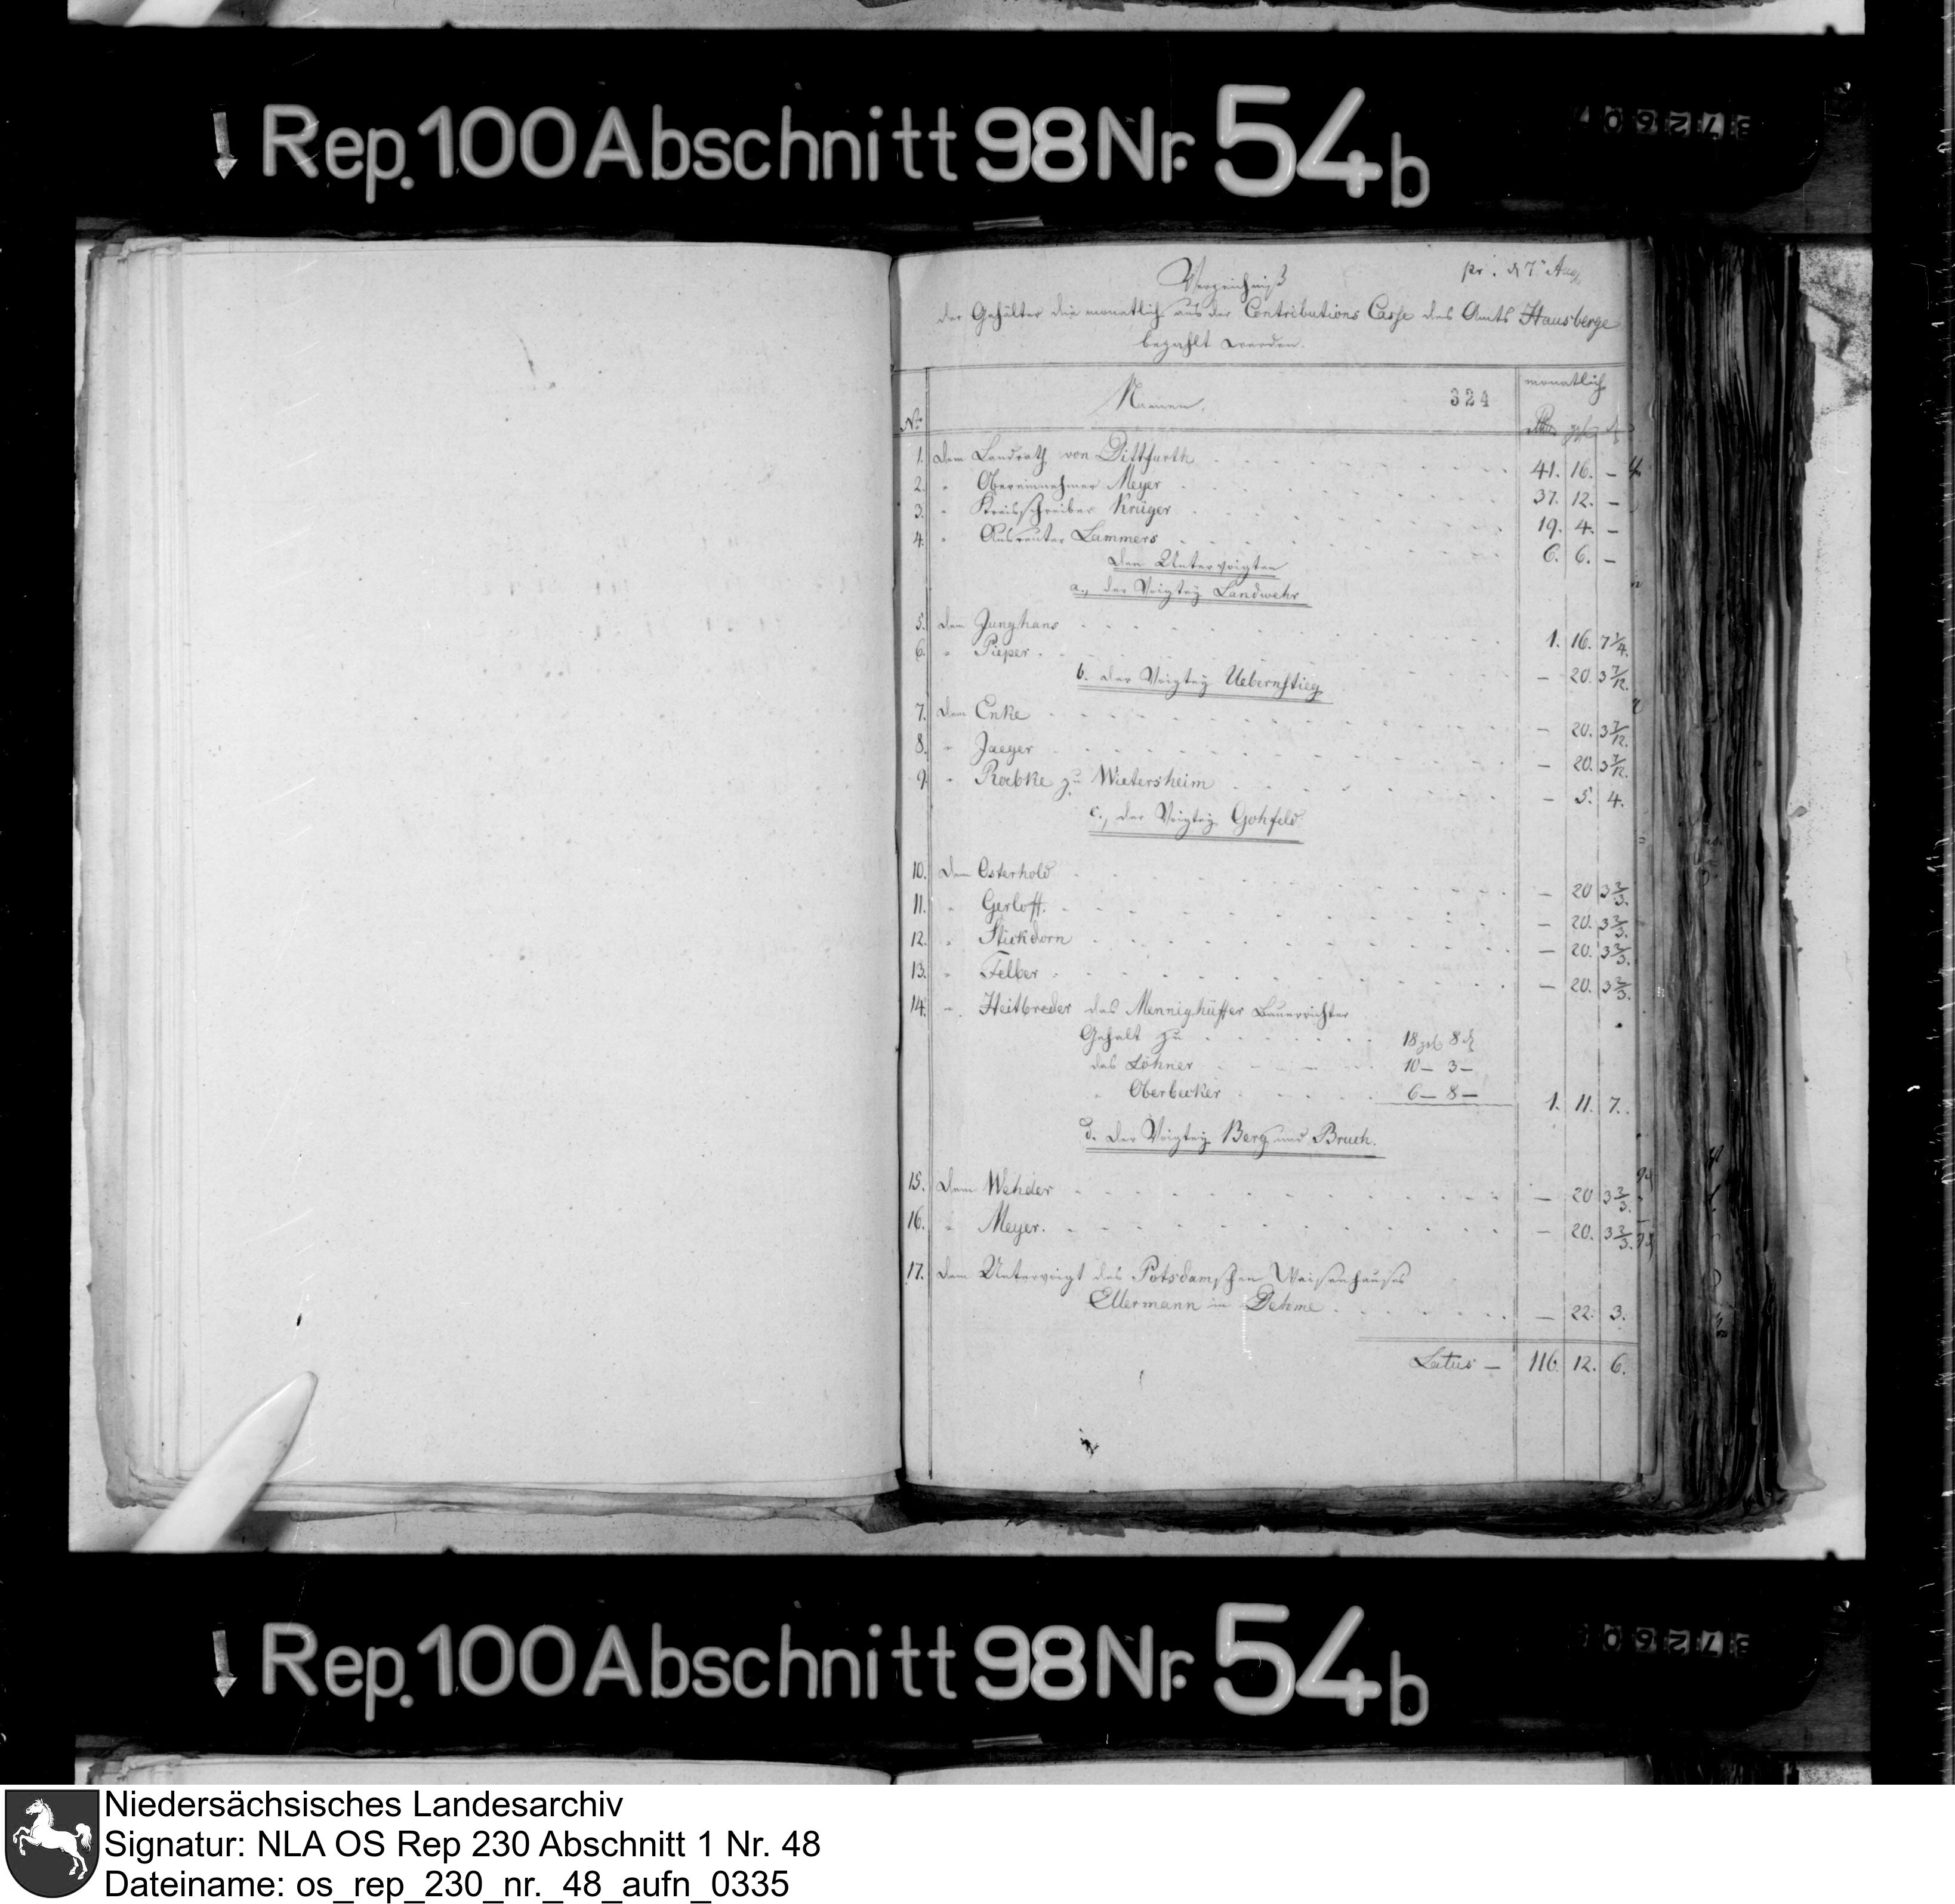 Rep. 100 Abschnitt 98 Nr. 54b
pr. d 7t Aug
Verzeichniß
der Gehälter die monatlich aus der Contributions Casse des Amts Hausberge
bezahlt werden.
Nr. Namen. 324 monatlich
Rthlr ggl d
1. dem Landrath von Dittfurth 41. 16. –
2. " Obereinnehmer Meyer 37. 12. –
3. " Kreisschreiber Krüger 19. 4. –
4. " Ausreuter Lammers 6. 6. –
Den Untervoigten
a., der Voigtey Landwehr
5. dem Junghans 1. 16. 7 1/4.
6. " Pieper – 20. 3 7/12.
b. der Voigtey Uebernstieg
7. dem Enke – 20. 3 7/12.
8. " Jaeger – 20. 3 7/12.
9. " Roebke zu Wietersheim – 5. 4.
c., der Voigtey Gohfeld
10. dem Osterhold – 20 3 2/3.
11. " Gerloff. – 20. 3 2/3.
12. " Stickdorn – 20. 3 2/3.
13. " Felber – 20. 3 2/3.
14. " Heitbreder das Mennighüffer Bauerrichter
Gehalt zu 18 ggl 8 d
das Löhner 10 – 3 –
" Oberbecker 6 – 8 – 1. 11. 7.
d. der Voigtey Berg und Bruch.
15. dem Wehder – 20 3 2/3.
16. " Meyer. – 20. 3 2/3.
17. dem Untervoigt des Potsdamschen Waisenhauses
Ellermann in Dehme – 22. 3.
Latus – 116. 12. 6.
Rep. 100 Abschnitt 98 Nr. 54b
Niedersächsisches Landesarchiv
Signatur: NLA OS Rep 230 Abschnitt 1 Nr. 48
Dateiname: os_rep_230_nr._48_aufn_0335